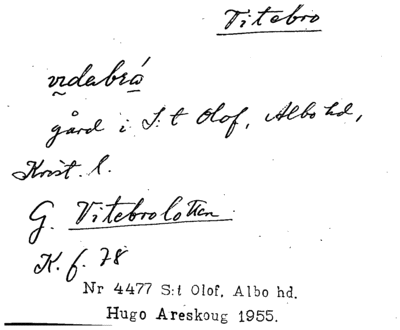 Titebro
vidabrå
gård i S:t Olof, Albo hd,
Krist. l.
G. Vitebrolotten
K. f. 78
Nr 4477 S:t Olof, Albo hd.
Hugo Areskoug 1955.